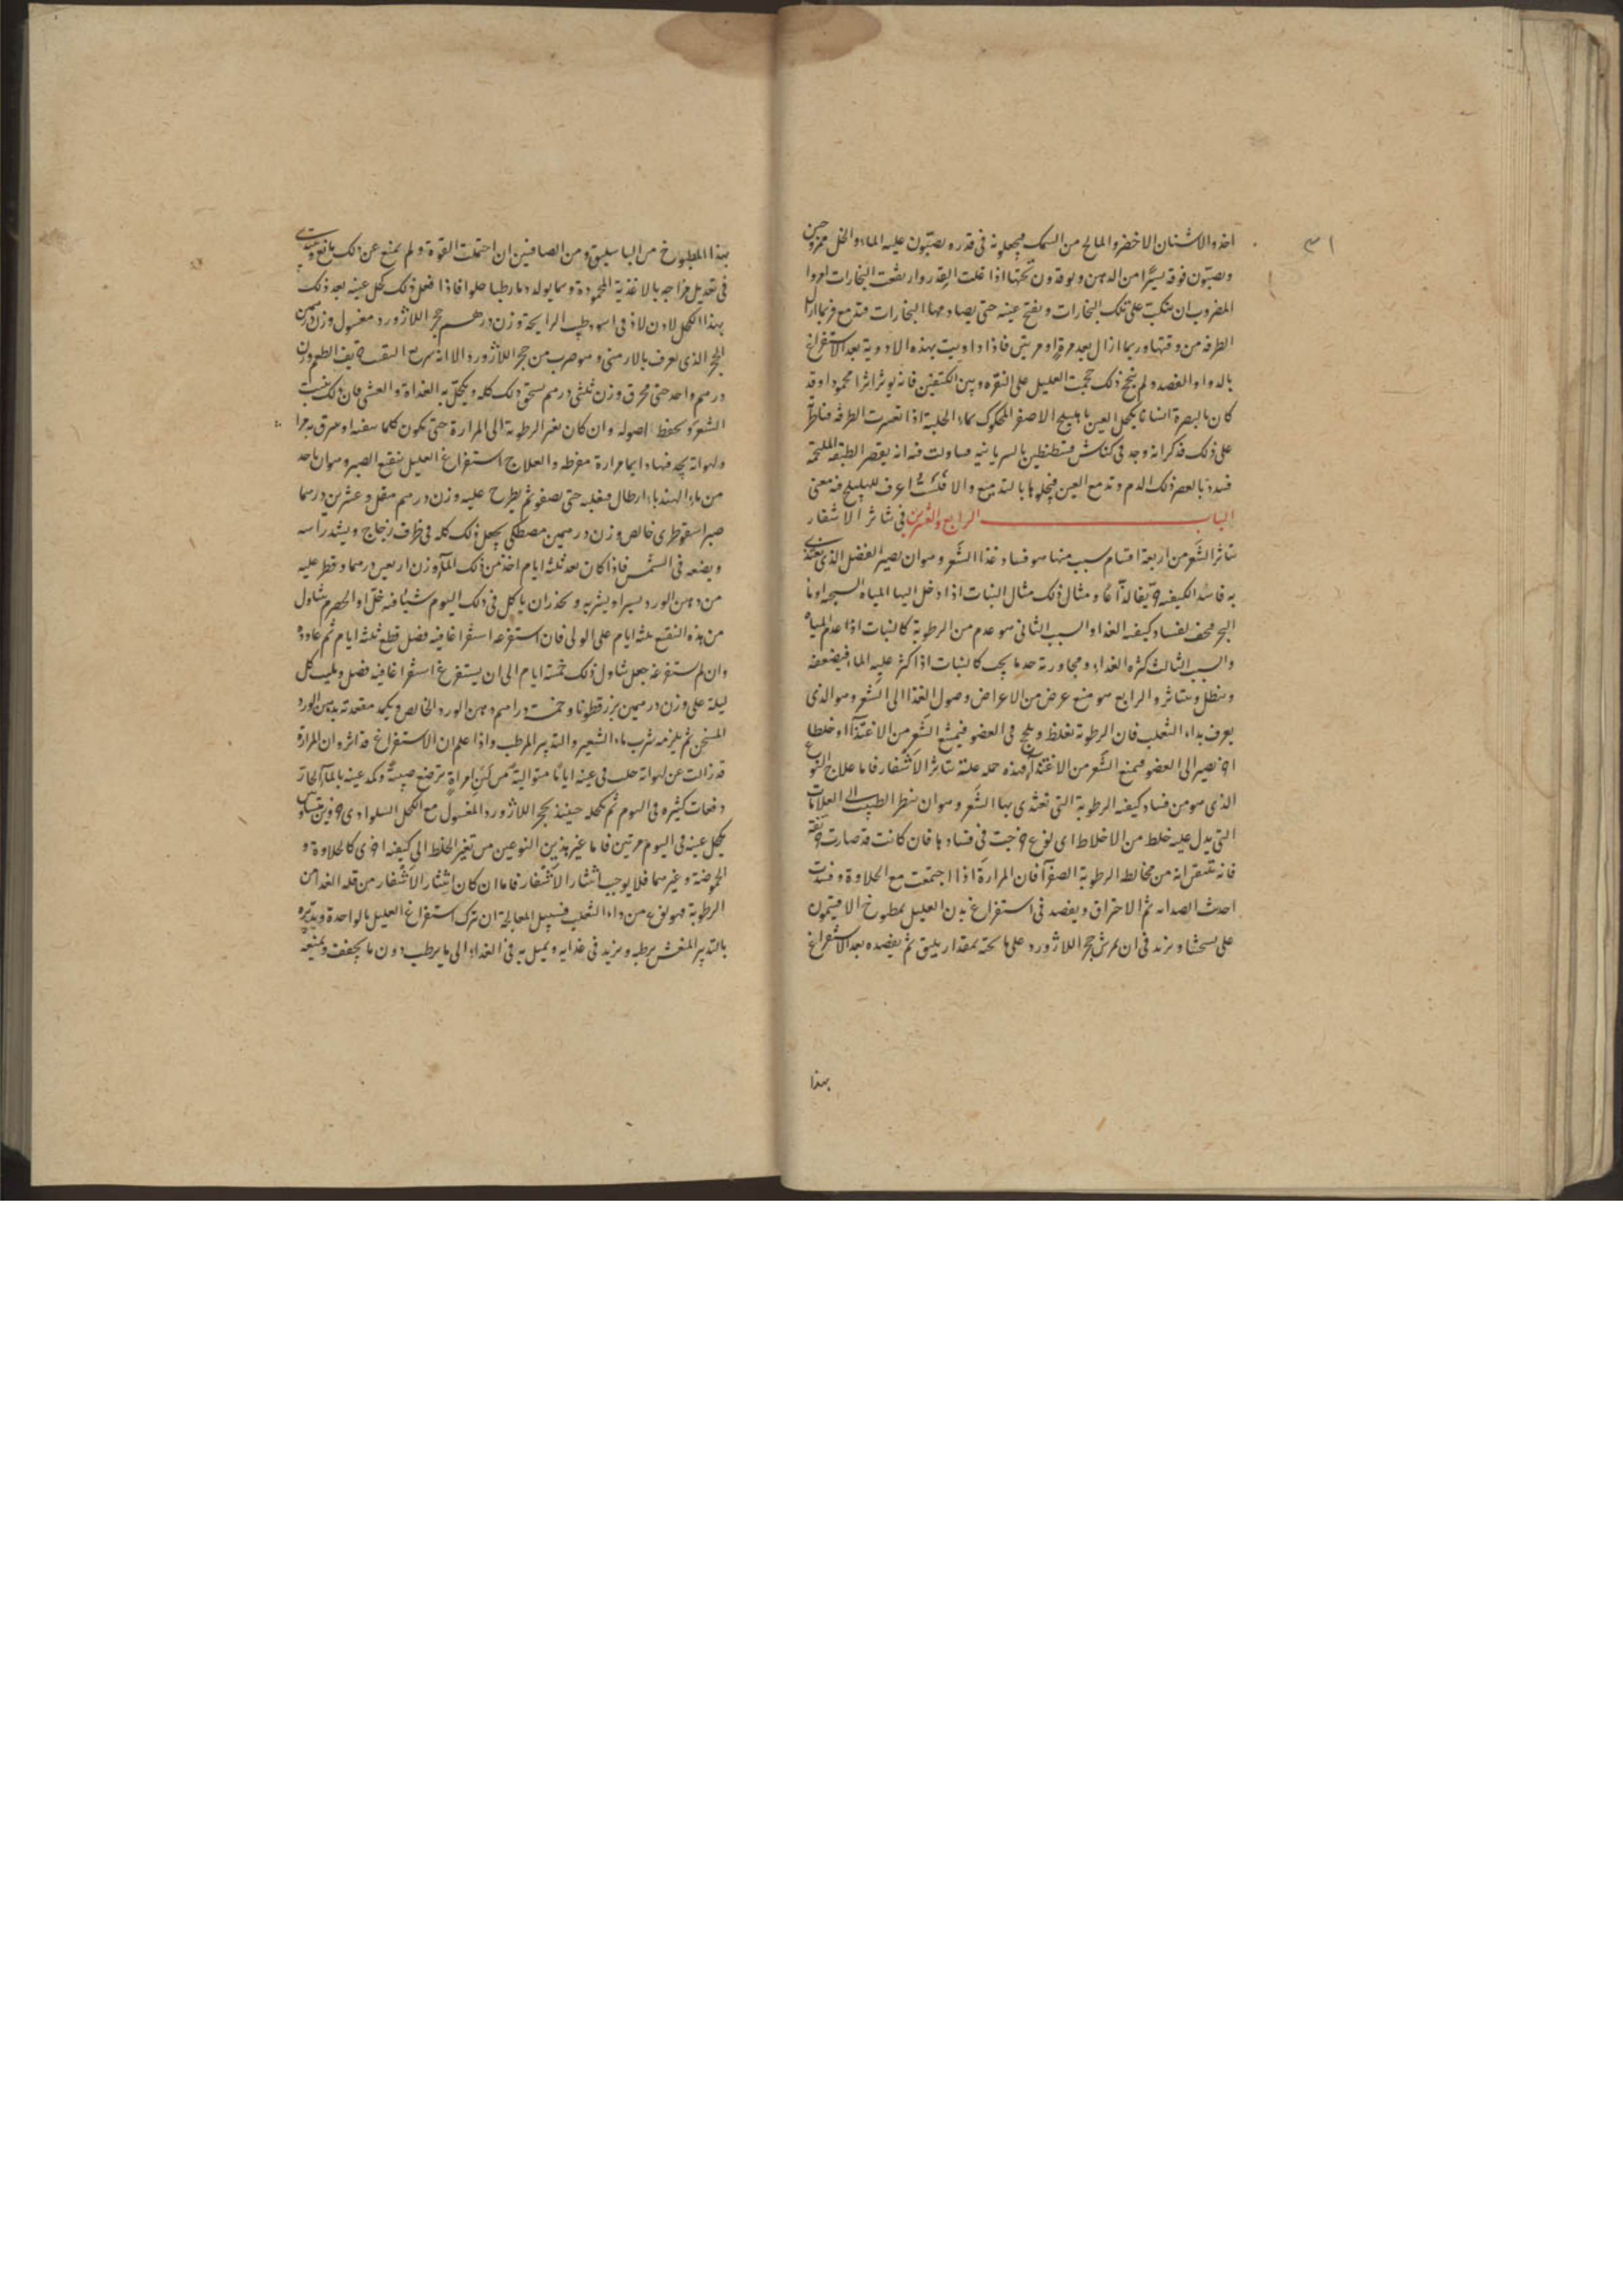 ٣١
اخذوا الاشنان الاخضر والمالح من السمك فيجعلونه فى قدره ويصبّون عليه الماء والخل ممزوجين
ويصبّون فوقه يسيرًا من الدهن ويوقدون تحتها اذا غلت القدر وارتفعت البخارات امروا
المضروب ان ينكبّ على تلك البخارات ويفتح عينه حتى يصادمها البخارات فتدمع فربما ازال
الطرفه من وقتها وربما ازال بعد مرةٍ او مرتين فاذا داويت بهذه الادوية بعد الاستفراغ
بالدوا والفصد ولم ينجح ذلك حجمت العليل على النقره وبين الكتفين فانه يوثر اثرا محمودا وقد
كان بالبصرة انسانا يكحل العين بهليلج الاصفر المحكوك بماء الحلبة اذا تعسرت الطرفه
على ذلك فذكر انه وجد فى كناش قسطنطين بالسريانيه فساولت فيه انه يعصر الطبقه الملتحمه
بالعصر ذلك الدم وتدمع العين فيجلوها بالتدميع والا فلست اعرف للهليلج فيه معنى
الباب الرابع والعشرين فى تناثر الاشفار
تناثر الشَّعر من اربعة اقسام سبب منها هو فساد غذا الشَّعر وهو ان يصير الفضل الذى يغتذى
به فاسد الكيفيه ومثال ذلك مثال النبات اذا دخل اليها المياه السبخه او ماء
البحر فيجف لفساد كيفيه الغدا والسبب الثانى هو عدم من الرطوبة كالنبات اذا عدم المياه
والسبب الثالث كثره الغداء ومجاورته حد ما يجب كالنبات اذا كثر عليه الماء فيضعفه
ويبطل ويتناثر والرابع هو منع عرض من الاعراض وصول الغذا الى الشعر وهو الذى
يعرف بداء الثعلب فان الرطوبة تغلظ ويلحج فى العضو فيمنع الشعر من الاغتذآ او خلطا
اخر يصير الى العضو فيمنع الشَّعر من الاغتذآ فهذه جمله علة تناثر الاشفار فاما علاج النوع
الذى هو من فساد كيفيه الرطوبة التى تغتذى بها الشَّعر وهو ان ينظر الطبيب الى العلامات
التى يدل عليه خلط من الاخلاط اى نوع خرجت فى فسادها فان كانت قد صارت حريفة
فانه تتيقن انه من مخالطه الرطوبة الصفرآ فان المرارة اذا اجتمعت مع الحلاوة وفسدت
احدث الصدا ثم الاحتراق ويقصد فى استفراغ بدن العليل بمطبوخ الافتيمون
على نسختنا ويزيد فى ان مرش حجر اللاژورد على ما تحته بمقدار يليق ثم يفصده بعد الاستفراغ
بهذا
بهذا المطبوخ من الباسليق ومن الصافنين ان احتملت القوة ولم يمنع عن ذلك مانع ويبتدى
فى تعديل مزاجه بالاغذية المحمودة ومما يولد دما رطبا حلوا فاذا فعل ذلك كحل عينه بعد ذلك
بهذا الكحل لادن لاذ فى اسود طيب الرايحة وزن درهم حجر اللاژورد مغسول وزن درهمين
الحجر الذى يعرف بالارمنى وهو ضرب من حجر اللاژورد الا انه
درهم واحد حتى محرق وزن ثلثى درهم يسحق ذلك كله ويكتحل به الغداة والعشى فان ذلك ينبت
الشعر ويحفظ اصوله وان كان تغير الرطوبة الى المرارة حتى تكون
ولهواته يجد فيها دايما مرارة مفرطه والعلاج استفراغ العليل بنقيع الصبر وهو ان ياخذ
من ماء الهندباء ارطال فيغليه حتى يصفو ثم يطرح عليه وزن درهم مقل وعشرين درهما
صبر اسقوطرى خالص وزن درهمين مصطكى يجعل ذلك كله فى ظرف زجاج ويشد راسه
ويضعه فى الشمس فاذا كان بعد ثلثة ايام اخذ من ذلك المآ وزن اربعين درهما وقطر عليه
من دهن الورد يسيرا ويشربه ويحذر ان ياكل فى ذلك اليوم شيئا فيه خل او الحصرم يتناول
من هذه النقيع ثلثة ايام على الولى فان استفرغه استفراغا فيه فضل قطع ثلثة ايام ثم عاوده
وان لم يستفرغه جعل تناول ذلك خمسة ايام الى ان يستفرغ استفراغا فيه فضل كل
ليلة على وزن درهمين بزر قطونا وخمسة دراهم دهن الورد الخالص ويكمد مقعدته بدهن الورد
المسخن ثم يلزمه شرب ماء الشعير والتدبير المرطب واذا علم ان الاستفراغ قد اثر وان المرارة
قد زالت عن لهواته حلب فى عينه اياما متوالية من لبن امراةٍ ترضع صبية وكمد عينه بالمآ الحار
دفعات كثيره فى اليوم ثم تكحله حينئذ بحجر اللاژورد المغسول مع الكحل
يكحل عينه فى اليوم مرتين فاما غير هذين النوعين من تغير الخلط الى كيفيه اخرى كالحلاوة و
الحموضة وغيرهما فلا يوجب انتثار الاشفار فاما ان كان انتثار الاشفار من قله الغدا من
الرطوبة فهو نوع من داء الثعلب فسبيل المعالجة ان يترك استفراغ العليل بالواحدة ويدبّره
بالتدبير المنعش يرطبه ويزيد فى غدايه ويميل به فى الغداء الى ما يرطب دون ما يجفف ويمنعه